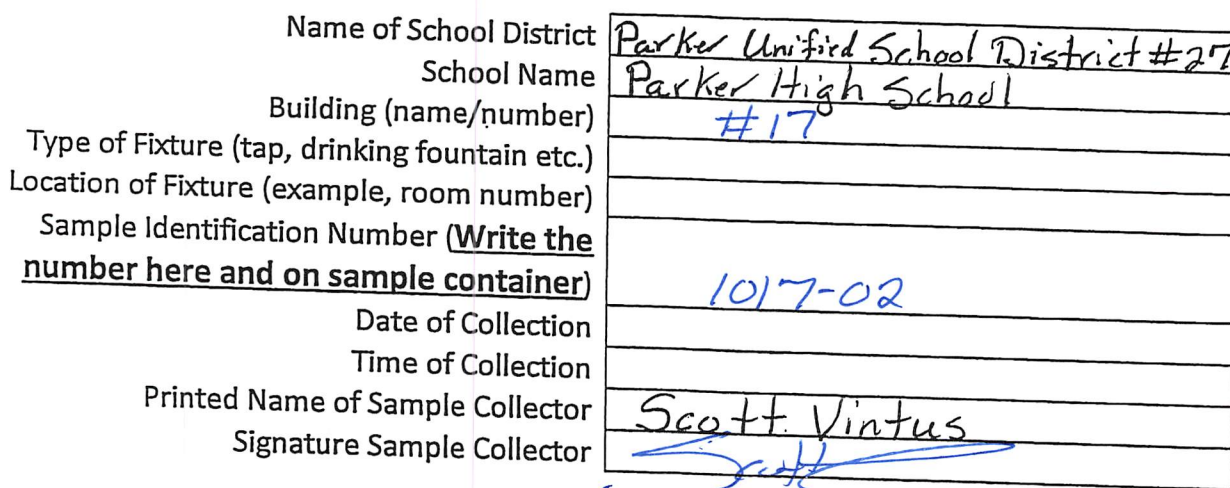 Name of School District Parker Unified School District #27
School Name Parker High School
Building (name/number) #17
Type of Fixture (tap, drinking fountain etc.)
Location of Fixture (example, room number)
Sample Identification Number (Write the
number here and on sample container) 1017-02
Date of Collection
Time of Collection
Printed Name of Sample Collector Scott Vintus
Signature Sample Collector